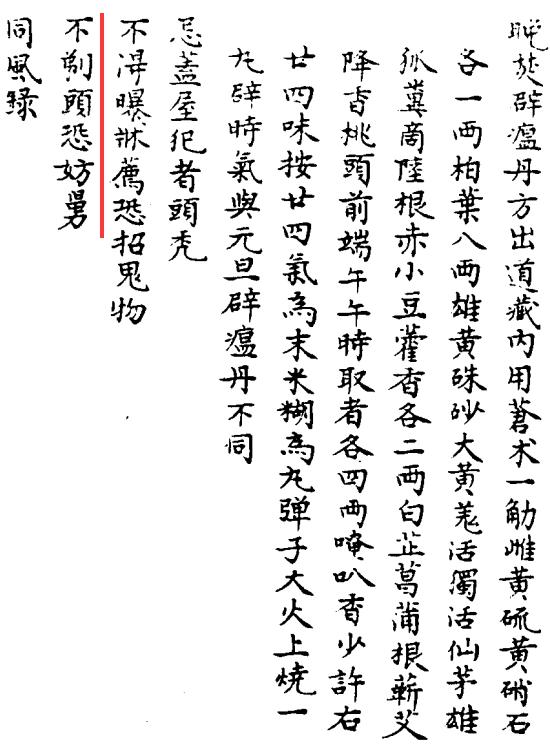 晚焚辟瘟丹方出道藏内用蒼术一觔雌黄硫黄硝石
各一两柏葉八两雄黄硃砂大黄羗活獨活仙茅雄
狐糞商陸根赤小豆藿香各二两白芷菖蒲根蕲艾
降香桃頭前端午午時取者各四两唵叭香少許右
廿四味按廿四氣為末米糊為丸弹子大火上燒一
丸辟時氣與元旦辟瘟丹不同
忌蓋屋犯者頭秃
不淂曝牀薦恐招鬼物
不剃頭恐妨舅
同風録